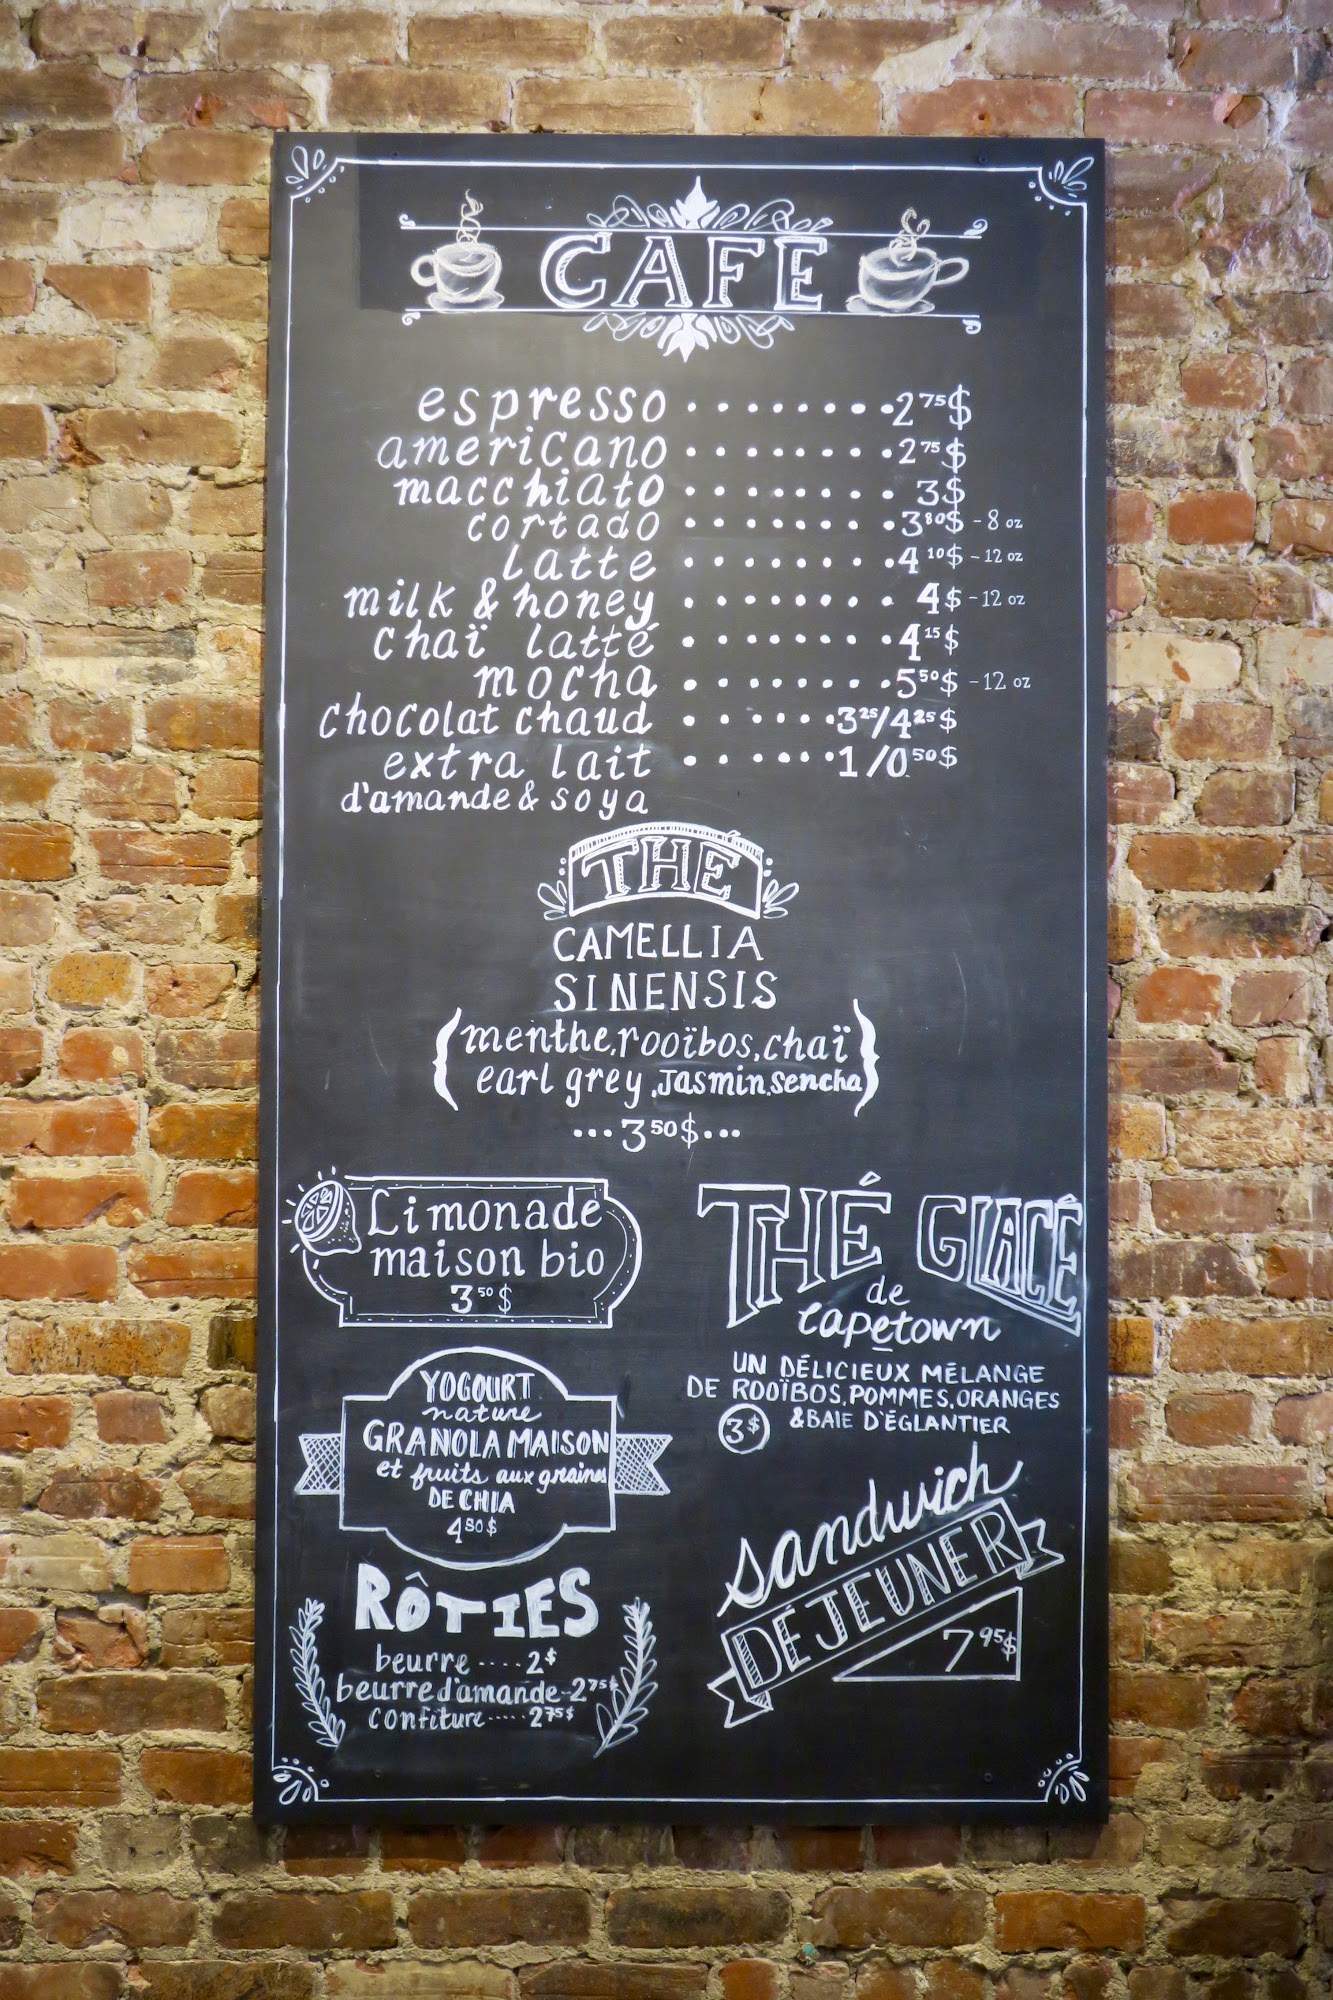 CAFÉ
espresso ········2⁷⁵$
americano ········2⁷⁵$
macchiato ········ 3$
cortado ········3⁸⁰$ - 8 oz
latte ········4¹⁰$ - 12 oz
milk & honey ········ 4$ - 12 oz
chaï latté ········4¹⁵$
mocha ········5⁵⁰$ - 12 oz
chocolat chaud ······3²⁵/4²⁵$
extra lait ······1/0.⁵⁰$
d'amande & soya
THÉ
CAMELLIA
SINENSIS
(menthe, rooïbos, chaï
earl grey, Jasmin, Sencha)
···3⁵⁰$···
Limonade
maison bio
3⁵⁰$
THÉ GLACÉ
de
Capetown
UN DÉLICIEUX MÉLANGE
DE ROOÏBOS, POMMES, ORANGES
& BAIE D'ÉGLANTIER
3$
YOGOURT
nature
GRANOLA MAISON
et fruits aux graines
DE CHIA
4⁵⁰$
sandwich
DÉJEUNER
7⁹⁵$
RÔTIES
beurre ···· 2$
beurre d'amande - 2⁷⁵$
confiture ····· 2⁷⁵$